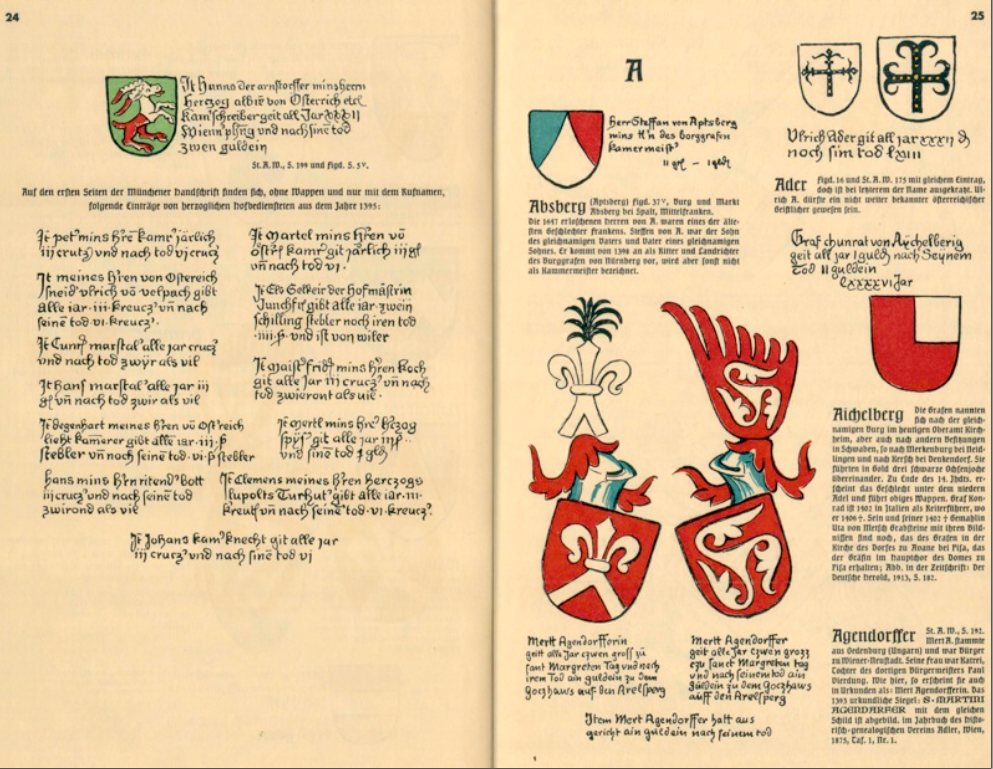 24
It Hanns der arnstorffer mins herrn
Herczog albrecht von Österrich etc.
Kamschreiber geit all Jar
Wienn phng und nach sine tod
zwen guldein
St. A. W., S. 199 und figd. S. 5v.
Auf den ersten Seiten der Münchener Handschrift finden sich, ohne Wappen und nur mit dem Rufnamen,
folgende Einträge von herzoglichen Hofbediensteten aus dem Jahre 1393:
It pet' mins hre kamr järlich
iii crutz und nach tod vj crucz
It meines hren von Ostereich
sneid' vlrich vo velpach gibt
alle iar · iii · kreucz vn nach
seine tod · vi · kreucz'.
It Cunr marstal' alle jar crucz
vnd nach tod zwyr als vil
It hans marstal' alle jar iii
gl vn nach tod zwir als vil
It degenhart meines hren vo Ost'reich
lieht kamerer gibt alle iar · iii · ß
stebler vn noch seine tod · vi · ß stebler
hans mins hrn ritend' bott
iii crucz' und nach seine tod
zwirond als vil
It Martel mins hren vo
öst'r kamr git järlich iii gl
vn nach tod vj .
It Els Selkeir der Hofmästrin
Junchfr gibt alle iar zwein
schilling stebler noch iren tod
· iiii · ß · vnd ist von wiler
It maist' fridr mins hren koch
git alle Jar iii crucz' vn nach
tod zwieront als vil ·
It mertl mins hre' herzog
git alle jar iii ß
vnd sine tod
It Clemens meines hren Herczogs
lupolts Turhut' gibt alle iar · iii ·
kreutz vn nach seine tod · vi · kreucz'.
It Johans kam' knecht git alle jar
iii crucz' vnd nach sine tod vj
25
A
Herr Steffan von Aptsberg
mins h'n des borggrafen
kamermeist'
ii gl –
Absberg (Aptsberg) figd. 37v, Burg und Markt
Absberg bei Spalt, Mittelfranken.
Die 1647 erloschenen Herren von A. waren eines der älte-
sten Geschlechter Frankens. Steffen von A. war der Sohn
des gleichnamigen Vaters und Vater eines gleichnamigen
Sohnes. Er kommt von 1394 an als Ritter und Landrichter
des Burggrafen von Nürnberg vor, wird aber sonst nicht
als Kammermeister bezeichnet.
Vlrich Ader git all jar xxxii
noch sim tod lxiiii
Ader figd. 16 und St. A. W. 175 mit gleichem Eintrag,
doch ist bei letzterem der Name ausgekratzt. Ul-
rich A. dürfte ein nicht weiter bekannter österreichischer
Geistlicher gewesen sein.
Graf chunrat von Aychelberig
geit all jar 1 guld nach Seynem
Tod II guldein
lxxxxvi Jar
Aichelberg Die Grafen nannten
sich nach der gleich-
namigen Burg im heutigen Oberamt Kirch-
heim, aber auch nach andern Besitzungen
in Schwaben, so nach Merkenburg bei Neid-
lingen und nach Kersch bei Denkendorf. Sie
führten in Gold drei schwarze Ochsenjoche
übereinander. Zu Ende des 14. Jhdts. er-
scheint das Geschlecht unter dem niedern
Adel und führt obiges Wappen. Graf Kon-
rad ist 1402 in Italien als Reiterführer, wo
er 1406 †. Sein und seiner 1402 † Gemahlin
Uta von Metsch Grabsteine mit ihren Bild-
nissen sind noch, das des Grafen in der
Kirche des Dorfes zu Avane bei Pisa, das
der Gräfin im Hauptchor des Domes zu
Pisa erhalten; Abb. in der Zeitschrift: Der
Deutsche Herold, 1913, S. 182.
Mertt Agendorfferin
geitt alle Jar czwen gross zu
sant Margreten Tag vnd nach
irem Tod ain guldein zu dem
goczhaws auf den Arelsperg
Mertt Agendorffer
geit alle Jar czwen grozz
czu sanct Margreten tag
vnd nach seinem tod ain
guldein zu dem Goczhaws
auff den Arelsperg
Item Mert Agendorffer hatt aus
gericht ain guldein nach seinem tod
Agendorffer St. A. W., S. 192.
Mert A. stammte
aus Oedenburg (Ungarn) und war Bürger
zu Wiener-Neustadt. Seine Frau war Katrei,
Tochter des dortigen Bürgermeisters Paul
Vierdung. Wie hier, so erscheint sie auch
in Urkunden als: Mert Agendorfferin. Das
1393 urkundliche Siegel: S · MARTINI
AGENDARFER mit dem gleichen
Schild ist abgebild. im Jahrbuch des histo-
risch-genealogischen Vereins Adler, Wien,
1875, Taf. 1, Nr. 1.